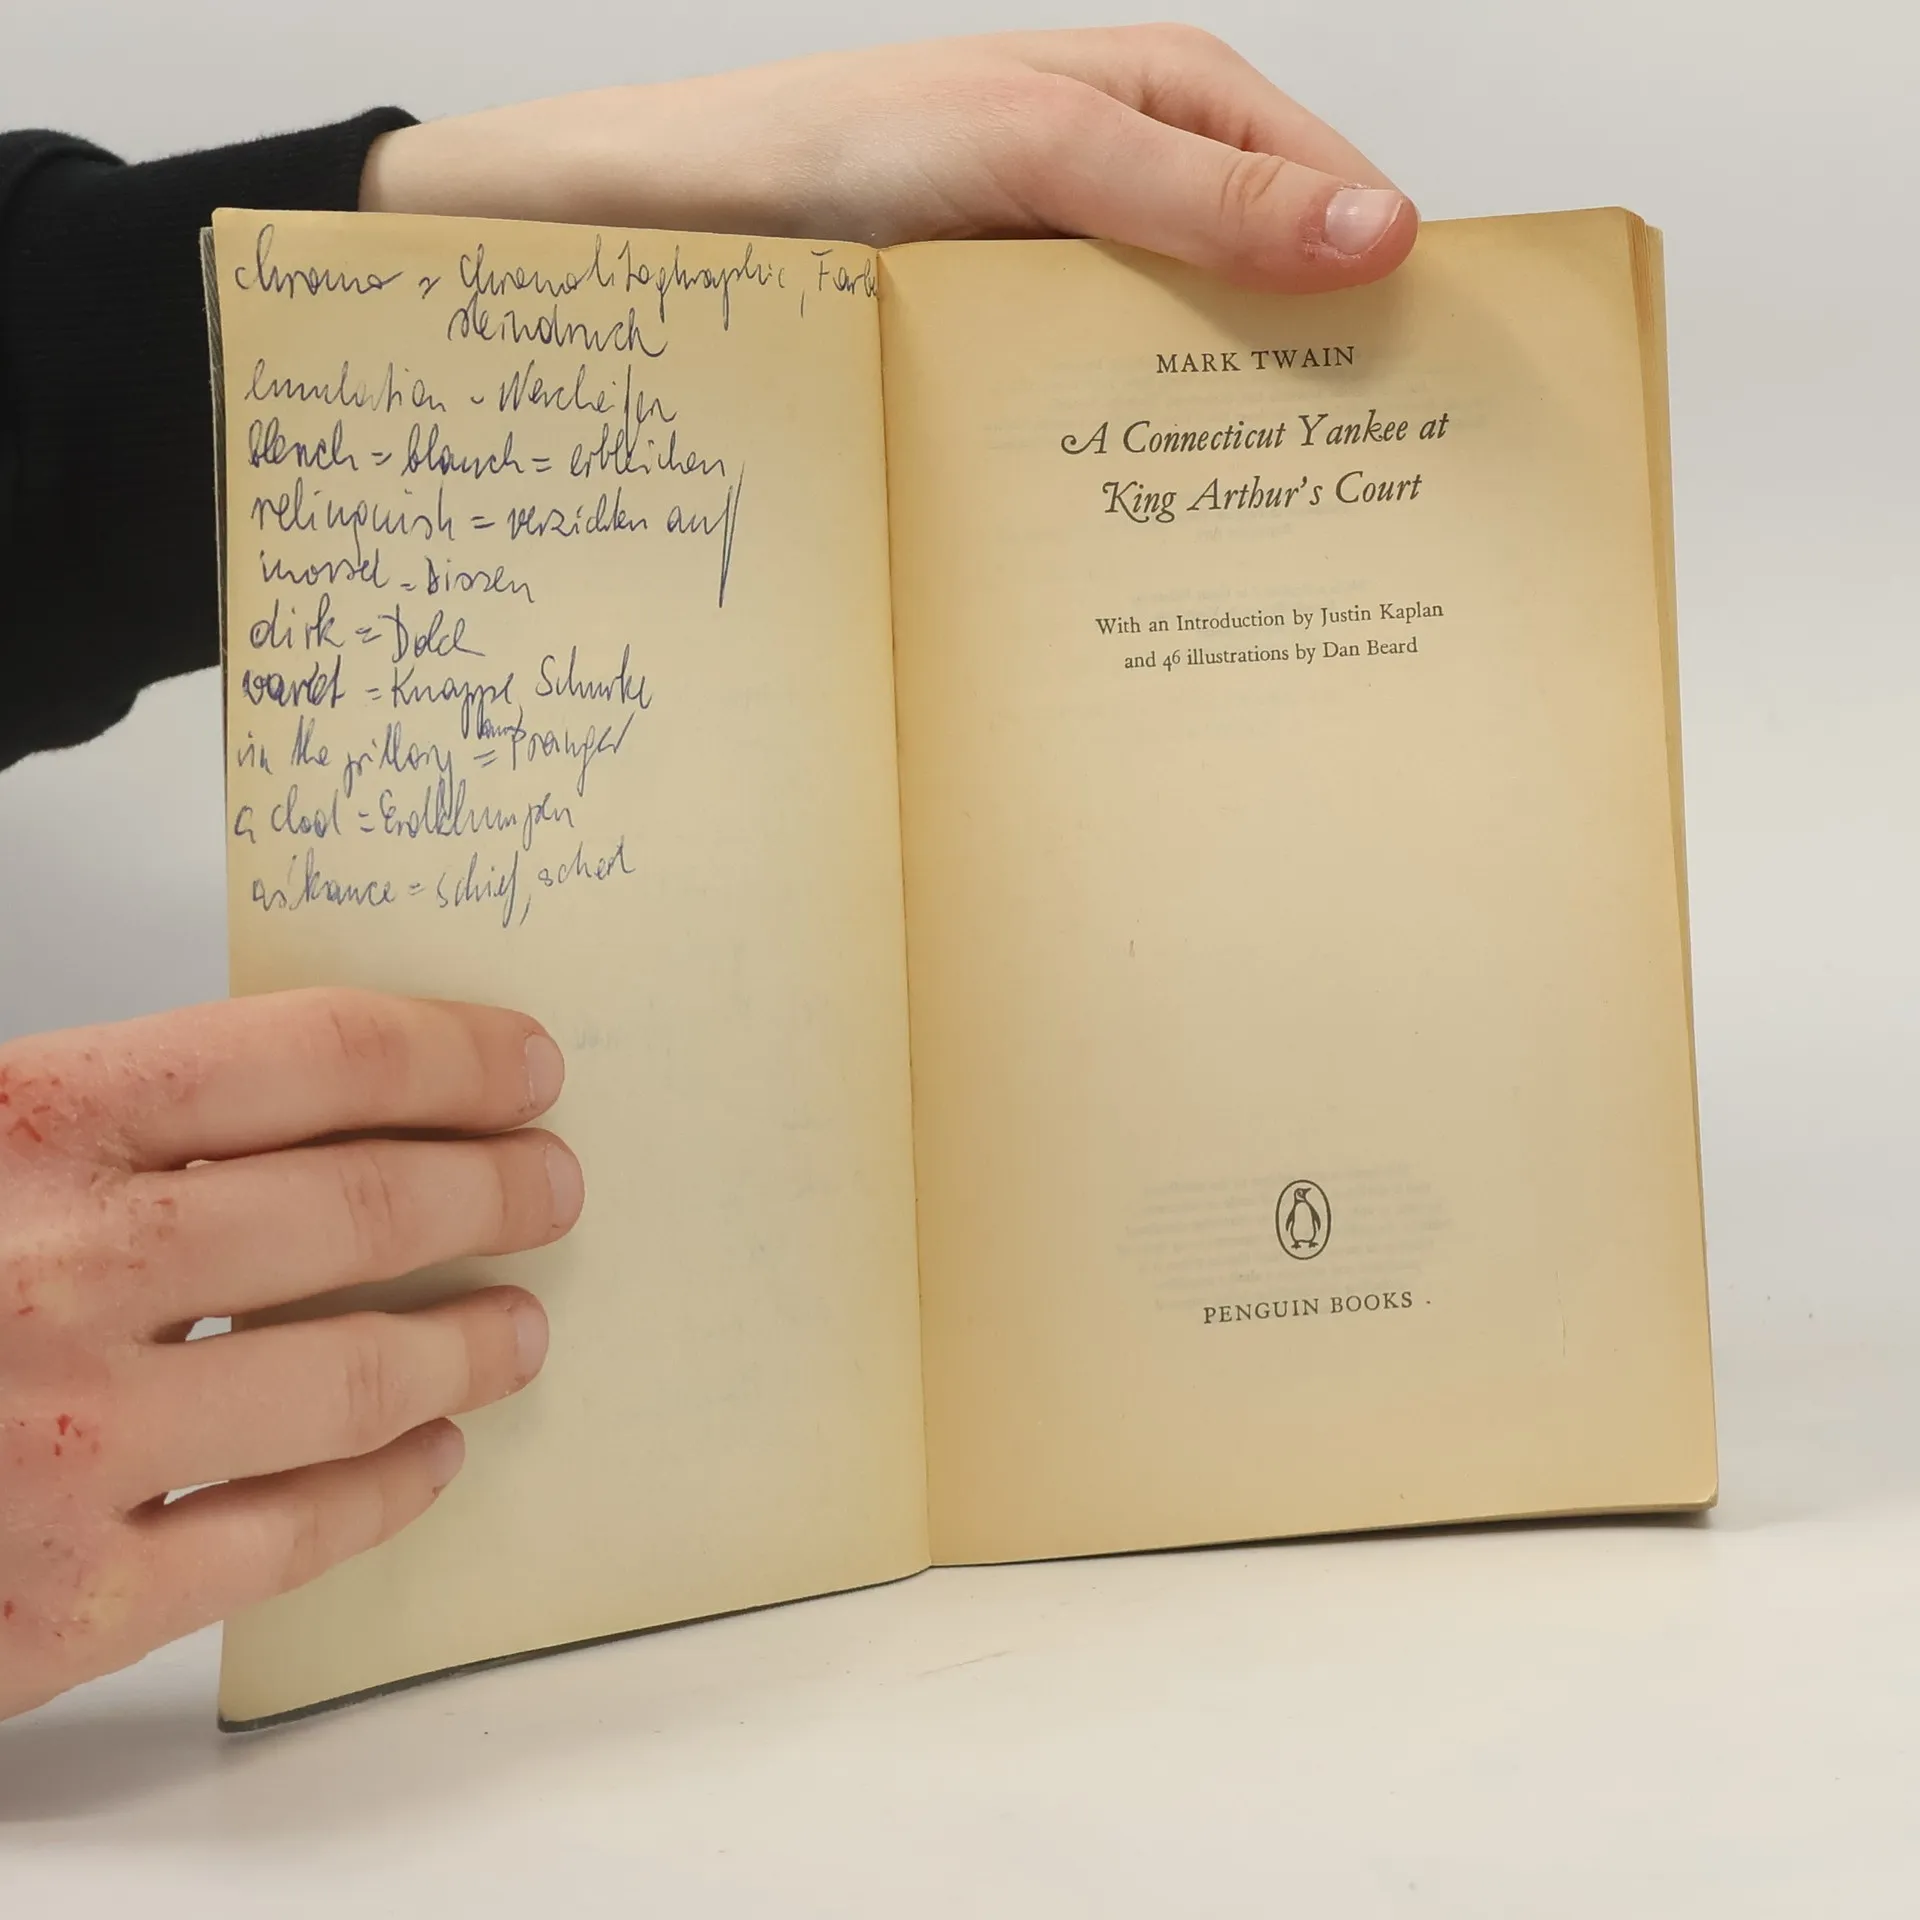 chromo = Chromolitographie, Farb
steindruck
emulation - Wetteifern
blench = blanch = erbleichen
relinquish = verzichten auf
morsel = Bissen
dirk = Dolch
varlet = Knappe, Schurke
in the pillory = Pranger
a clod = Erdklumpen
askance = schief, scheel
MARK TWAIN
A Connecticut Yankee at
King Arthur's Court
With an Introduction by Justin Kaplan
and 46 illustrations by Dan Beard
PENGUIN BOOKS